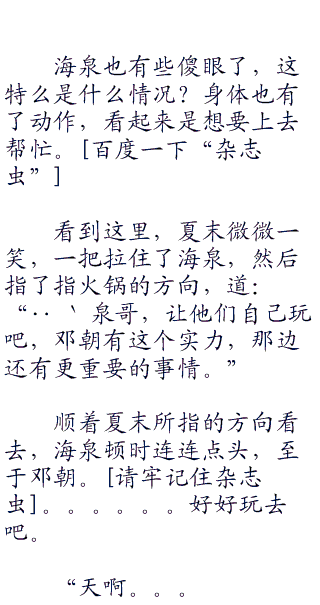 海泉也有些傻眼了，这
特么是什么情况？身体也有
了动作，看起来是想要上去
帮忙。[百度一下“杂志
虫”]
看到这里，夏末微微一
笑，一把拉住了海泉，然后
指了指火锅的方向，道：
“··｀泉哥，让他们自己玩
吧，邓朝有这个实力，那边
还有更重要的事情。”
顺着夏末所指的方向看
去，海泉顿时连连点头，至
于邓朝。[请牢记住杂志
虫]。。。。。。好好玩去
吧。
“天啊。。。